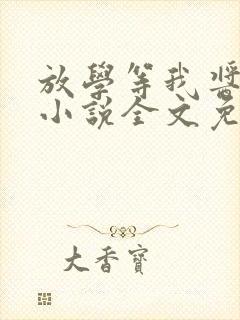 放學等我醬
小說全文免
大香寶